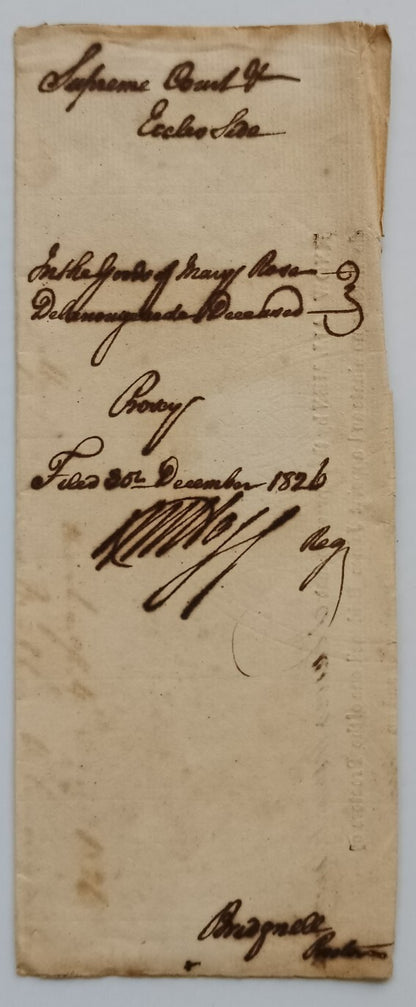 Supreme Court &
Eccles Side
In the Goods of Mary Rose
Deceased
Proxy
Filed 30th December 1826
Reg
Bridgnell
Proctor